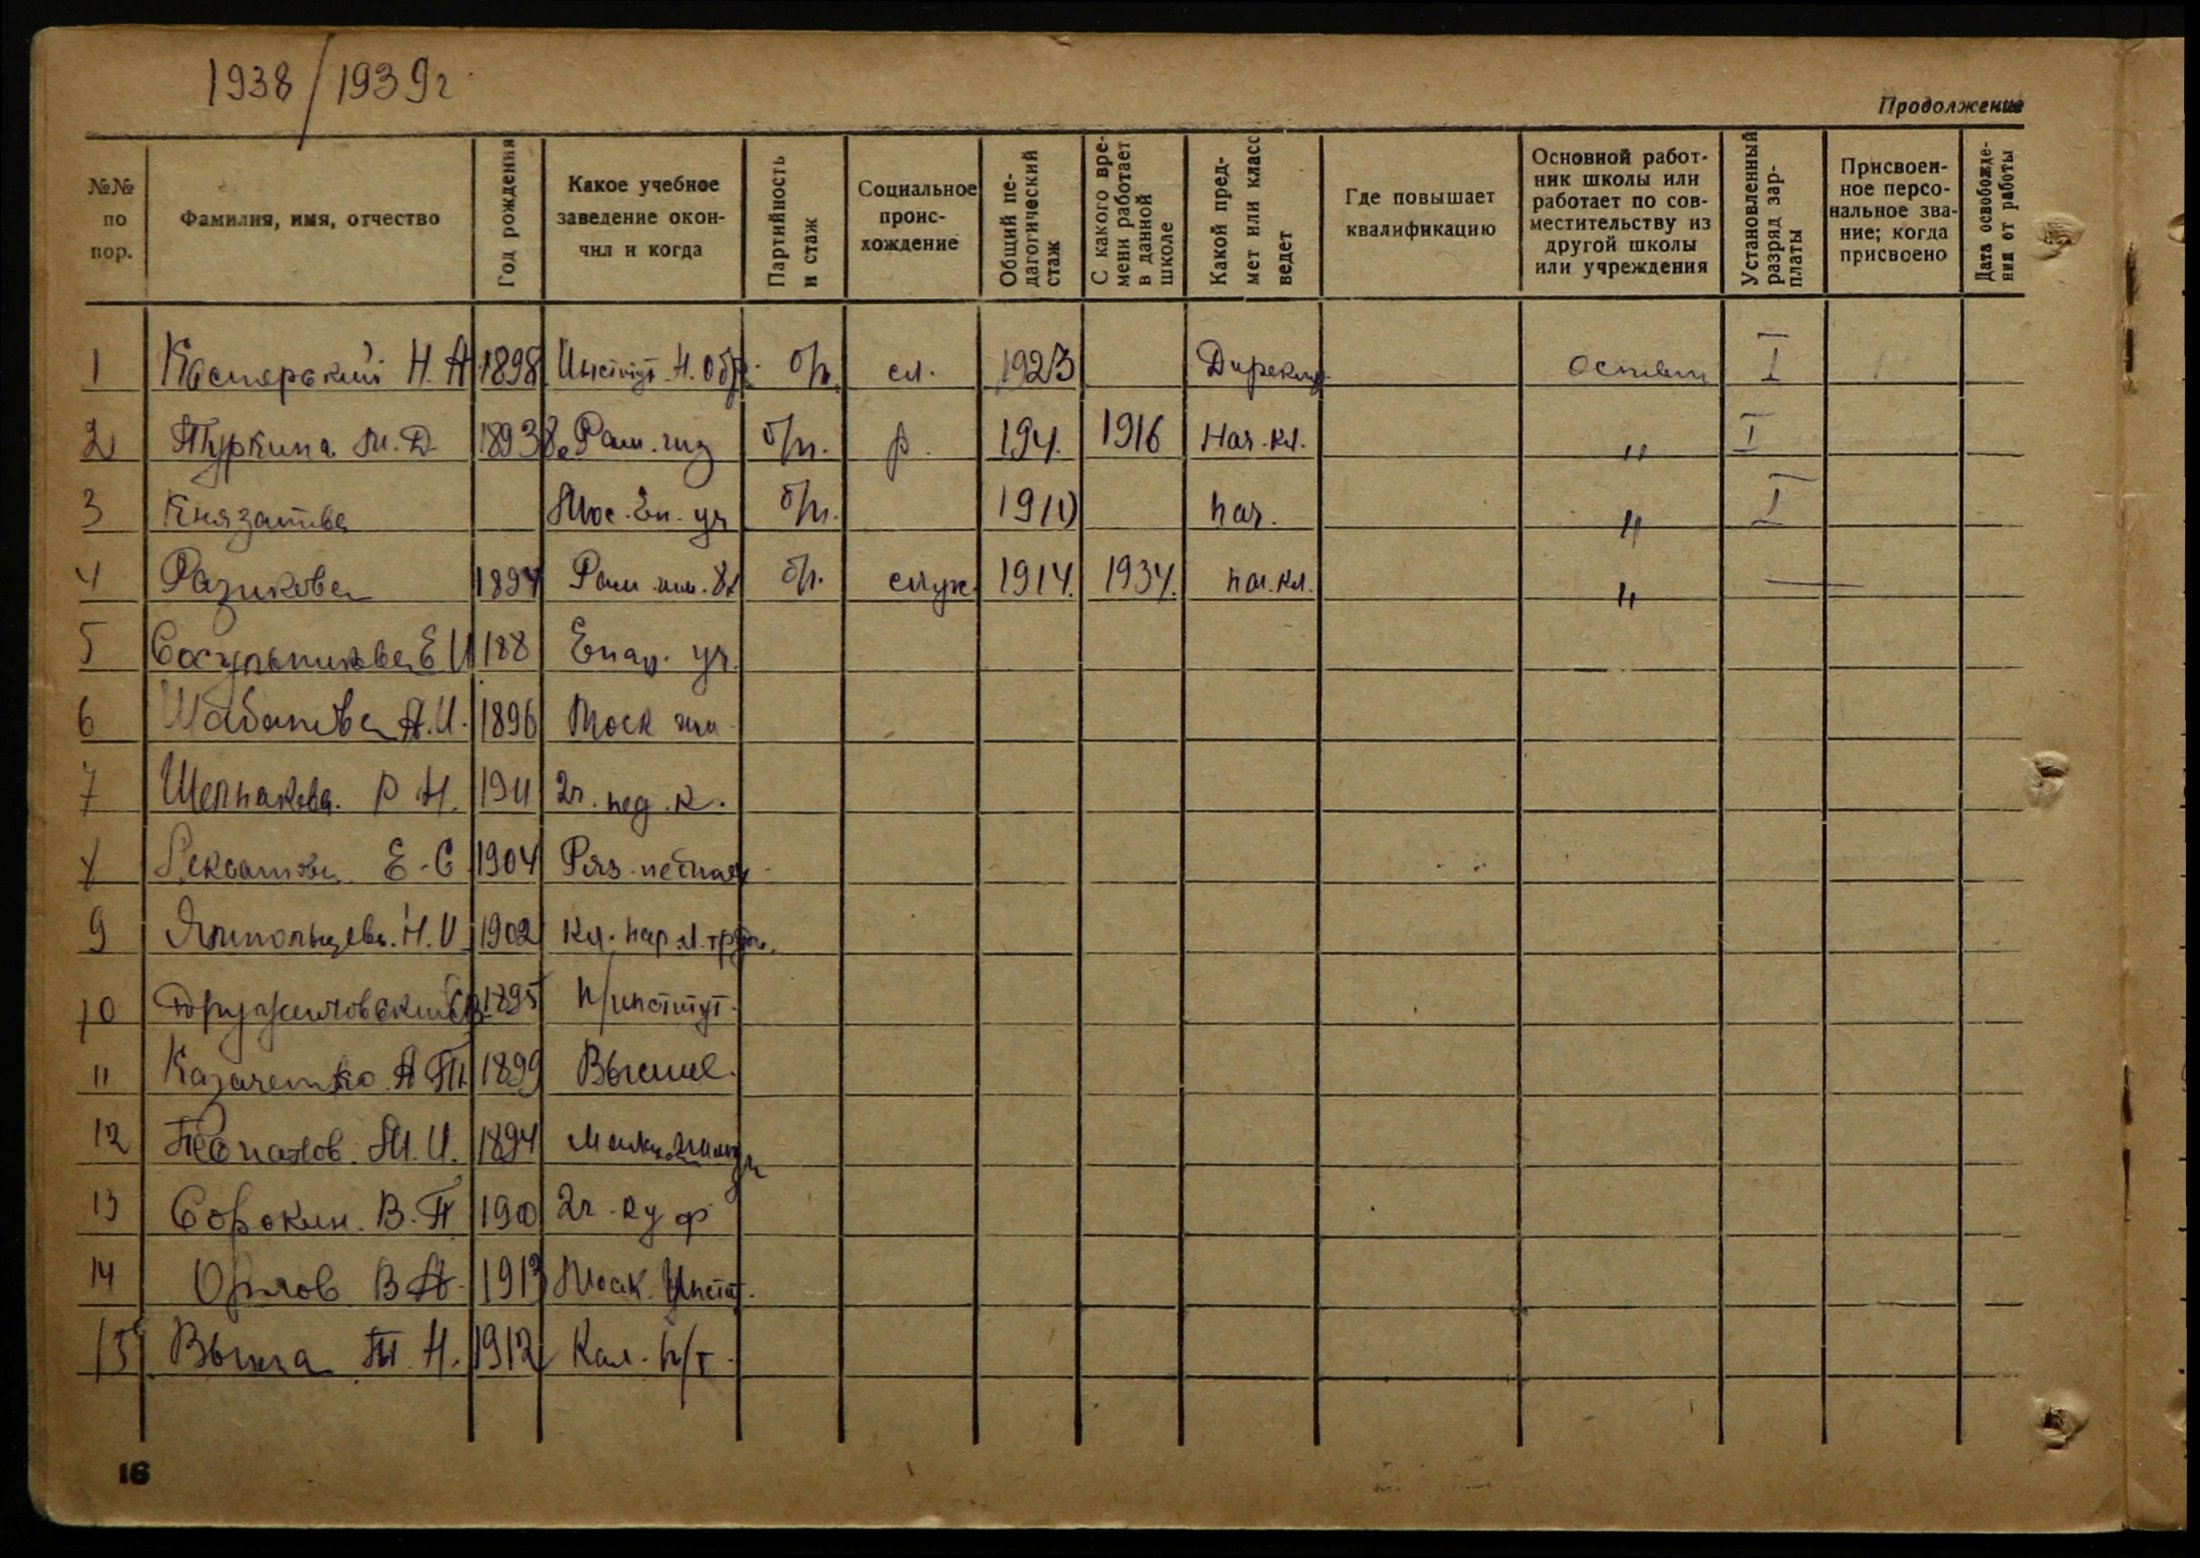 1938/1939г
Продолжение
№№ по пор.
Фамилия, имя, отчество
Год рождения
Какое учебное заведение окончил и когда
Партийность и стаж
Социальное происхождение
Общий педагогический стаж
С какого времени работает в данной школе
Какой предмет или класс ведет
Где повышает квалификацию
Основной работник школы или работает по совместительству из другой школы или учреждения
Установленный разряд зарплаты
Присвоенное персональное звание; когда присвоено
Дата освобождения от работы
1 Касперский Н. А 1898 Институт Н. Обр. б/п. сл. 1923 Директ. I
2 Туркина М. Д. 1893 б/п. р. 194. 1916 Нач. кл. " I
3 Мос. Еп. уч б/п. нач. " I
4 Разикова 1894 б/п. служ. 1914. 1934. нач. кл. " —
5 Сосульникова Е И 188 Епар. уч.
6 Шабанова А. И. 1896 Моск
7 Шелпакова. Р Н. 1911 2г. пед. к.
8 Е. С 1904 Ряз.
9 Н. И 1902 Кл. нар.
10 Дружиловский 1895 п/институт.
11 Казаченко А П. 1899 Высшее.
12 М. И. 1894
13 Сорокин. В. П 1900 2г.
14 Орлов В А. 1913 Моск. Инстит.
15 Н. 1912 Кал. п/т.
16